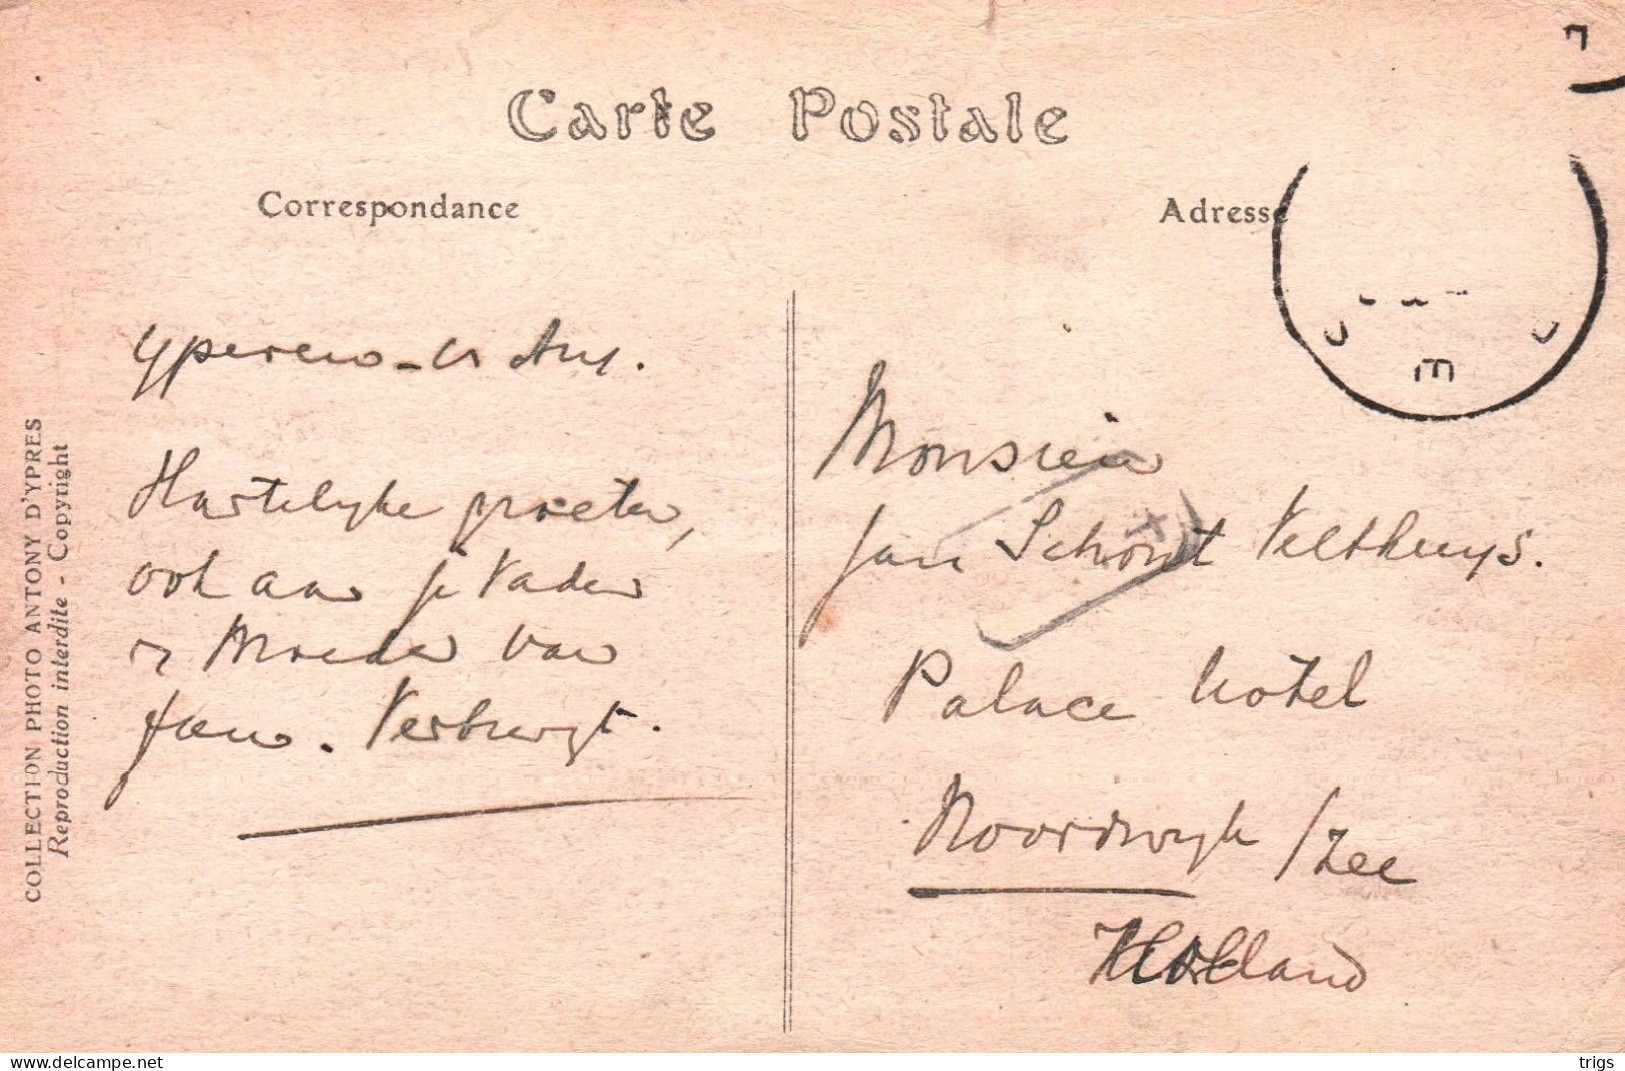 Carte Postale
Correspondance
Adresse
Yperen - Aug.
Hartelyke groeten,
ook aan je Vader
en Moeder van
Jan. Verbrugt.
Monsieur
Jan Schont Velthuys.
Palace Hotel
Noordwyk / Zee
Holland
COLLECTION PHOTO ANTONY D'YPRES
Reproduction interdite - Copyright
https://www.delcampe.net
trigs